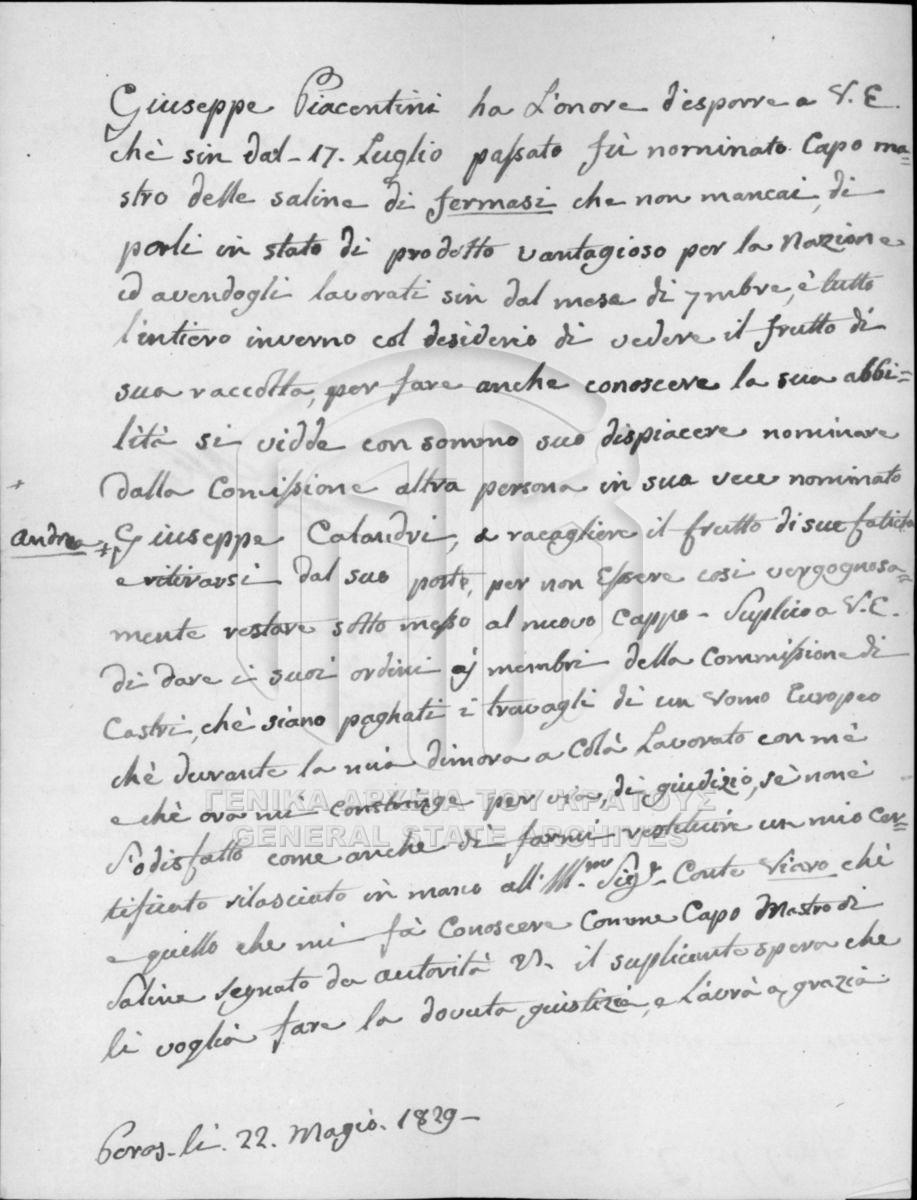 Giuseppe Piacentini ha L'onore d'esporre a V. E.
chè sin dal - 17. Luglio passato fù nominato Capo ma=
stro delle saline di fermasi che non mancai, di
porli in stato di prodotto vantagioso per la Nazione
ed avendogli lavorati sin dal mese di 7mbre, è tutto
l'intiero inverno col desiderio di vedere il frutto di
sua raccolta, per fare anche conoscere la sua abbi=
lità si vidde con sommo suo dispiacere nominare
+ dalla Comissione altra persona in sua vece nominato
Andrea + Giuseppe Calandri, a racagliere il frutto di sue fatiche
e ritirarsi dal suo posto, per non Essere cosi vergognosa=
mente restare sotto messo al nuovo Cappo - Suplico a V. E.
di dare i suoi ordini aj membri della Commissione di
Castri, chè siano paghati i travagli di un Vomo Europeo
chè durante la mia dimora a Colà Lavorato con mè
e chè ora mi constringe per via di giudizio, sè non è
Sodisfatto come anche di farmi restituire un mio Cer=
tificato rilasciato in mano all' Ill.mo Sig.r Conte Viaro chè
e quello che mi fà Conoscere Comme Capo Mastro di
Saline Segnato da autorità il suplicante spera che
li voglià fare la dovuta giustizia, e L'avrà a grazia
Poros - li. 22. Magio. 1829 -
ΓΕΝΙΚΑ ΑΡΧΕΙΑ ΤΟΥ ΚΡΑΤΟΥΣ
GENERAL STATE ARCHIVES